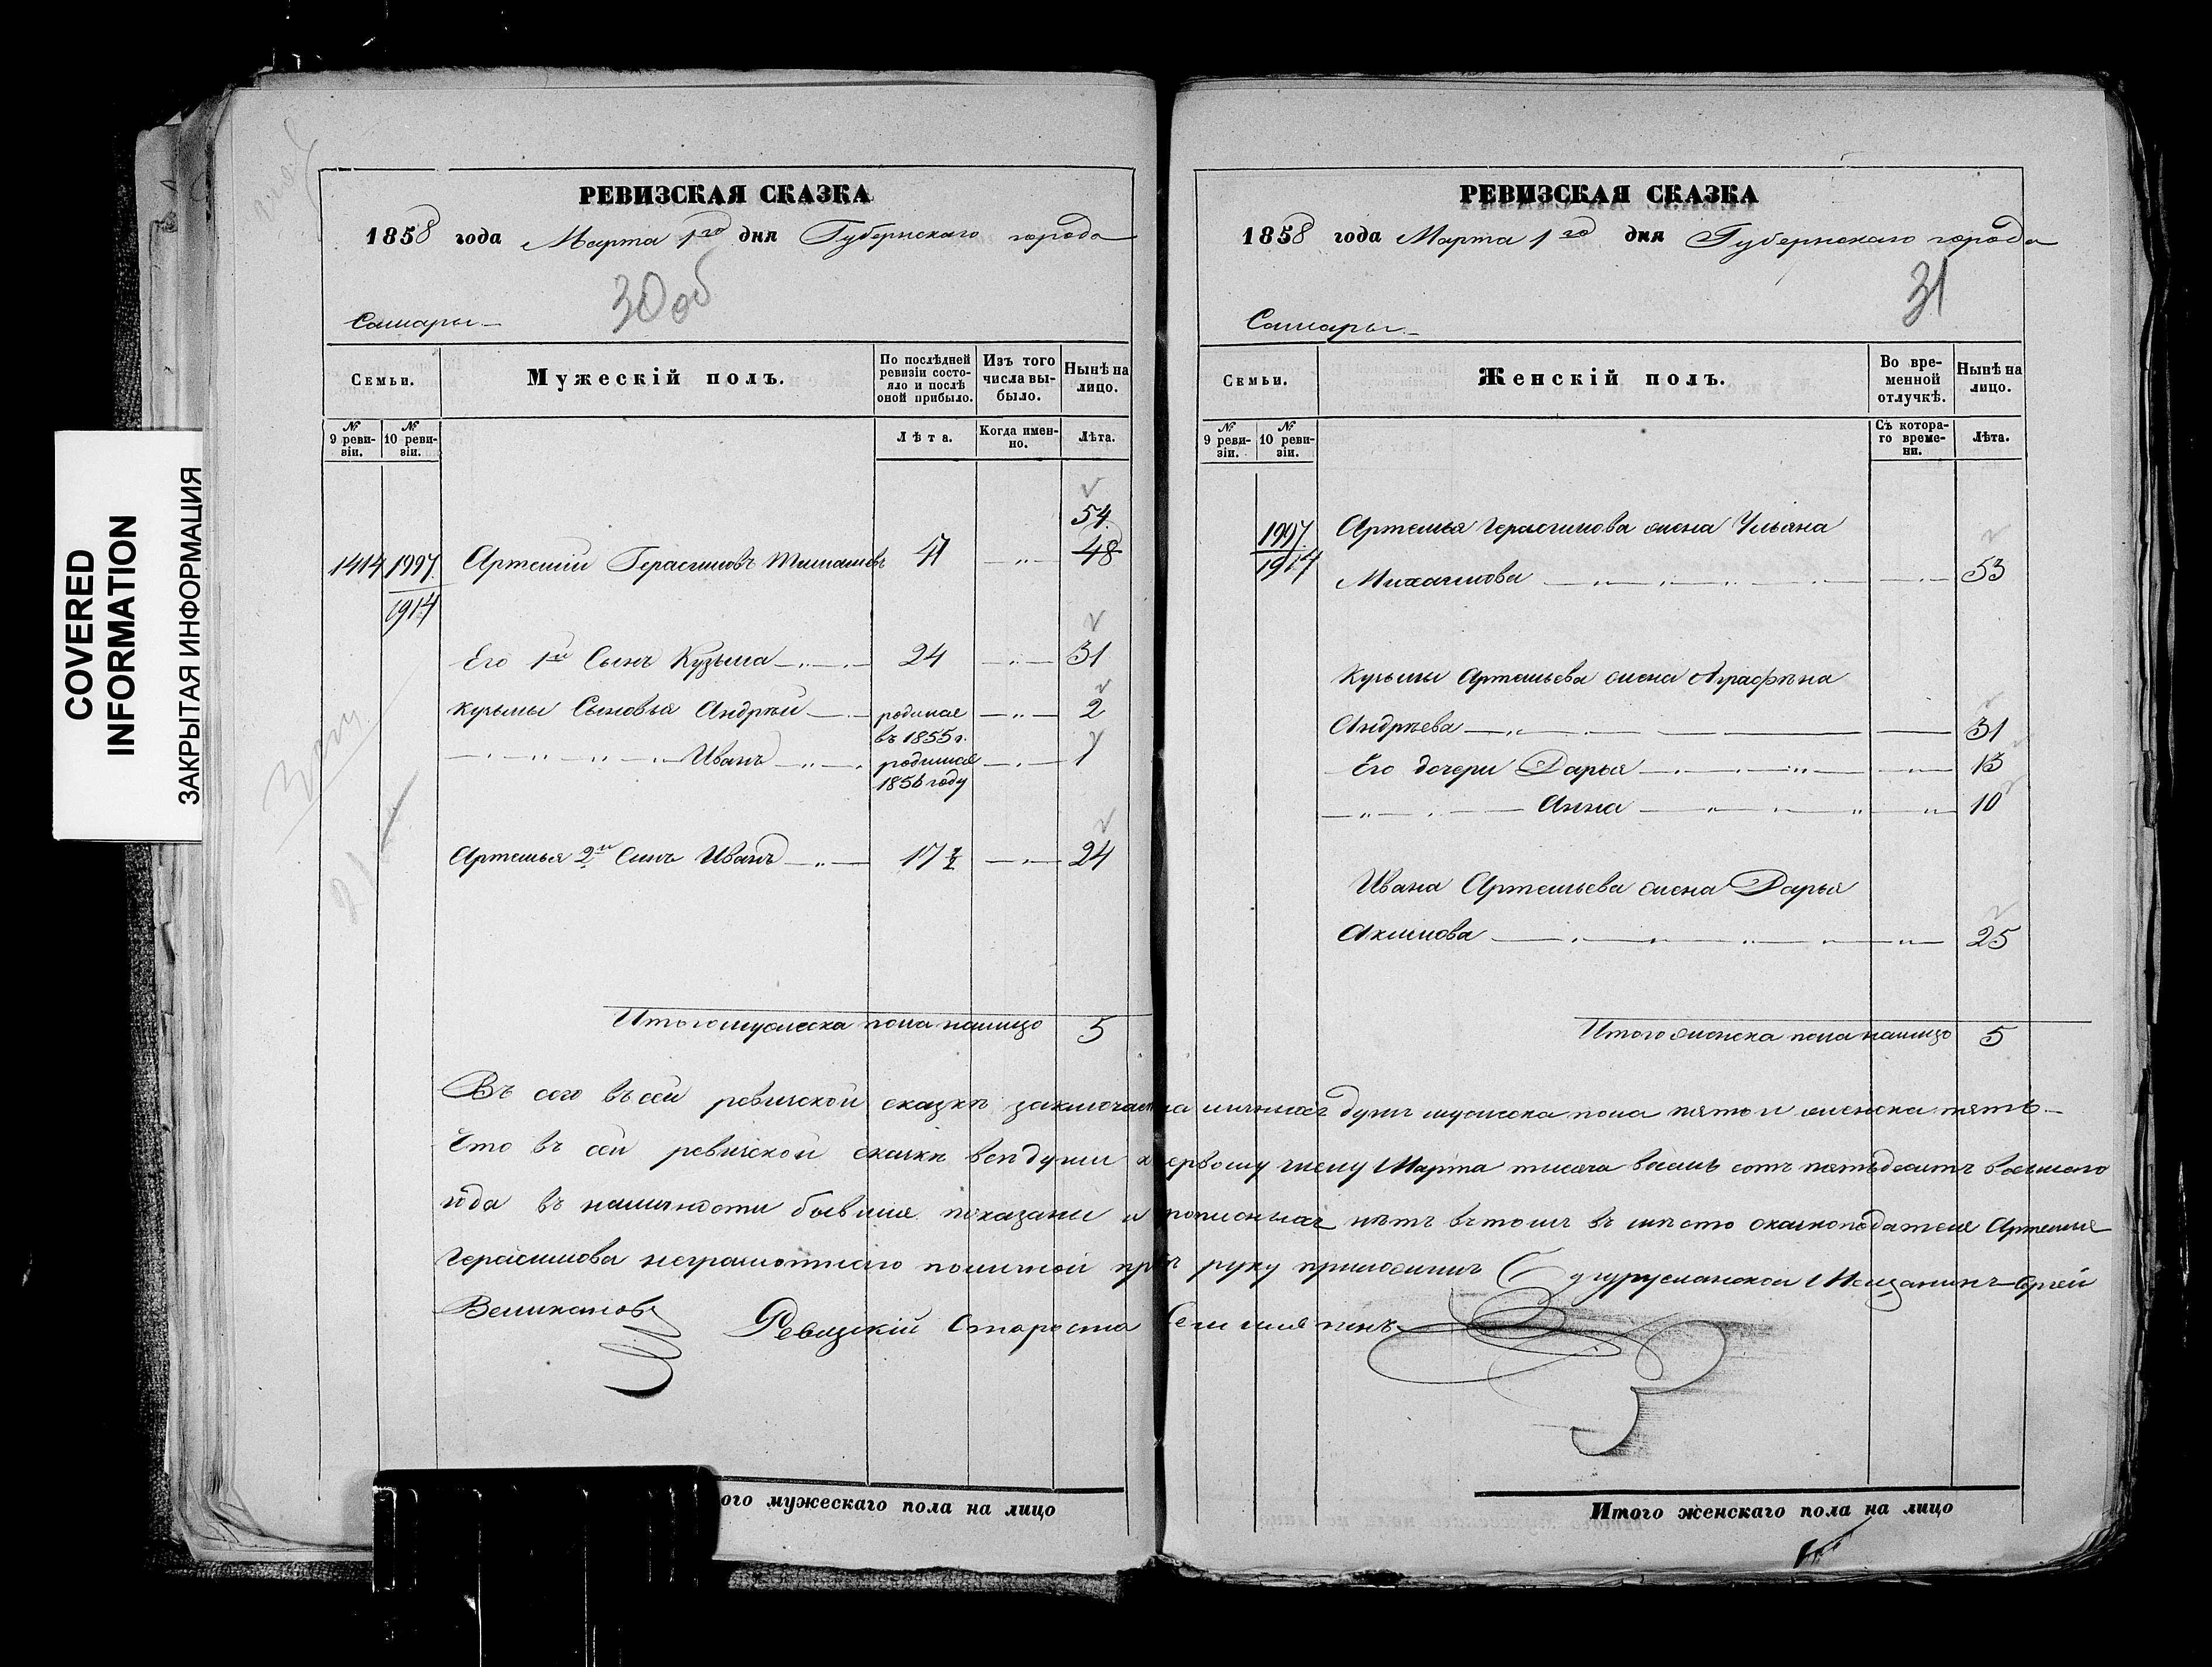 COVERED
INFORMATION
ЗАКРЫТАЯ ИНФОРМАЦИЯ
РЕВИЗСКАЯ СКАЗКА
1858 года Марта 1го дня Губернскаго города
30 об
Самары
Семьи.
Мужескій полъ.
По послѣдней ревизіи состояло и послѣ оной прибыло.
Изъ того числа выбыло.
Нынѣ на лицо.
№ 9 ревизіи.
№ 10 ревизіи.
Лѣта.
Когда именно.
Лѣта.
54
1414 1997 Артемій Герасимовъ 47 48
1914
Его 1й Сынъ Кузьма 24 31
Кузьмы Сыновья Андрей родился въ 1855 г. 2
Иванъ родился 1856 году 1
Артемья 2й Сынъ Иванъ 17 ½ 24
Итого мужеска пола налицо 5
РЕВИЗСКАЯ СКАЗКА
1858 года Марта 1го дня Губернскаго города
31
Самары
Семьи.
Женскій полъ.
Во временной отлучкѣ.
Нынѣ на лицо.
№ 9 ревизіи.
№ 10 ревизіи.
Съ котораго времени.
Лѣта.
1997 Артемья Герасимова жена Ульяна
1914 Михайлова 53
Кузьмы Артемьева жена Аграфѣна
Андрѣева 31
Его дочери Дарья 13
Анна 10
Ивана Артемьева жена Дарья
Акимова 25
Итого женска пола налицо 5
въ сей ревизской сказкѣ душъ мужеска пола пять и женска пять
Что въ сей ревизской сказкѣ всѣ души к первому числу Марта тысяча восемь сотъ пятьдесятъ восьмого
года въ наличности бывшие показаны и прописныхъ нѣтъ въ томъ въ мѣсто сказкоподателя Артемия
Герасимова неграмотнаго по личной прозьбѣ руку приложилъ Бугурусланской Мещанинъ Сергей
Великановъ Ревизкій Староста
ого мужескаго пола на лицо
Итого женскаго пола на лицо